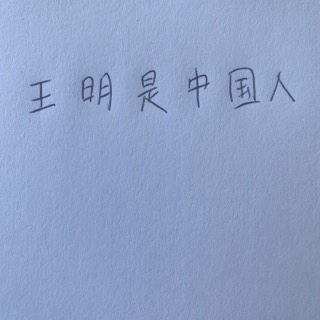 王明是中国人